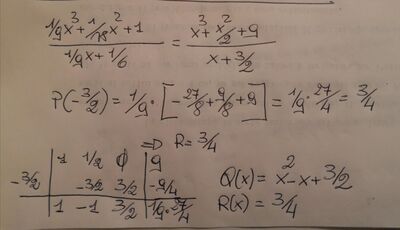 1/9x³+1/18x²+1 / 1/9x+1/6 = x³+x²/2+9 / x+3/2
P(-3/2)=1/9·[-27/8+9/8+9]=1/9·27/4=3/4
⇒ R=3/4
1 1/2 0 9
-3/2 -3/2 3/2 -9/4
1 -1 3/2 1/9·27/4
Q(x)=x²-x+3/2
R(x)=3/4